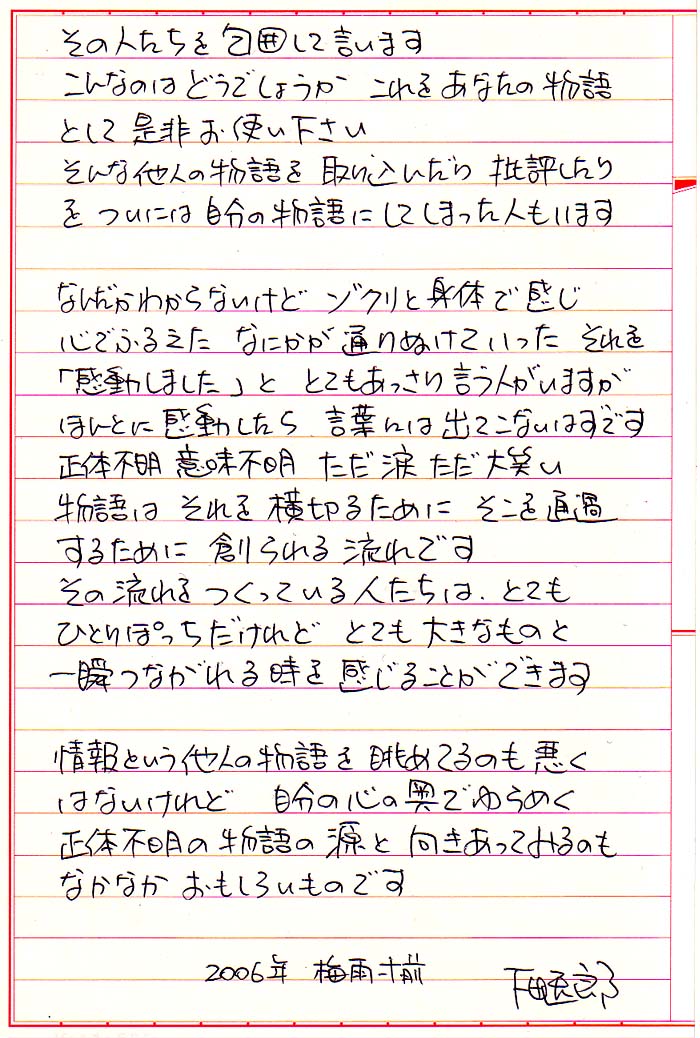 その人たちを包囲して言います
こんなのはどうでしょうか これをあなたの物語
として是非お使い下さい
そんな他人の物語を 取り込いだり 批評したり
を ついには自分の物語にしてしまった人もいます
なんだかわからないけど ゾクリと身体で感じ
心でふるえた なにかが通りぬけていった それを
「感動しました」と とてもあっさり言う人がいますが
ほんとに感動したら 言葉には出てこないはずです
正体不明 意味不明 ただ涙 ただ大笑い
物語は それを横切るために そこを通過
するために 創られる流れです
その流れをつくっている人たちは、とても
ひとりぼっちだけれど とても大きなものと
一瞬つながれる時を感じることができます
情報という他人の物語を眺めてるのも悪く
はないけれど 自分の心の奥でゆらめく
正体不明の物語の源と向きあってみるのも
なかなか おもしろいものです
2006年 梅雨寸前
下田逸郎